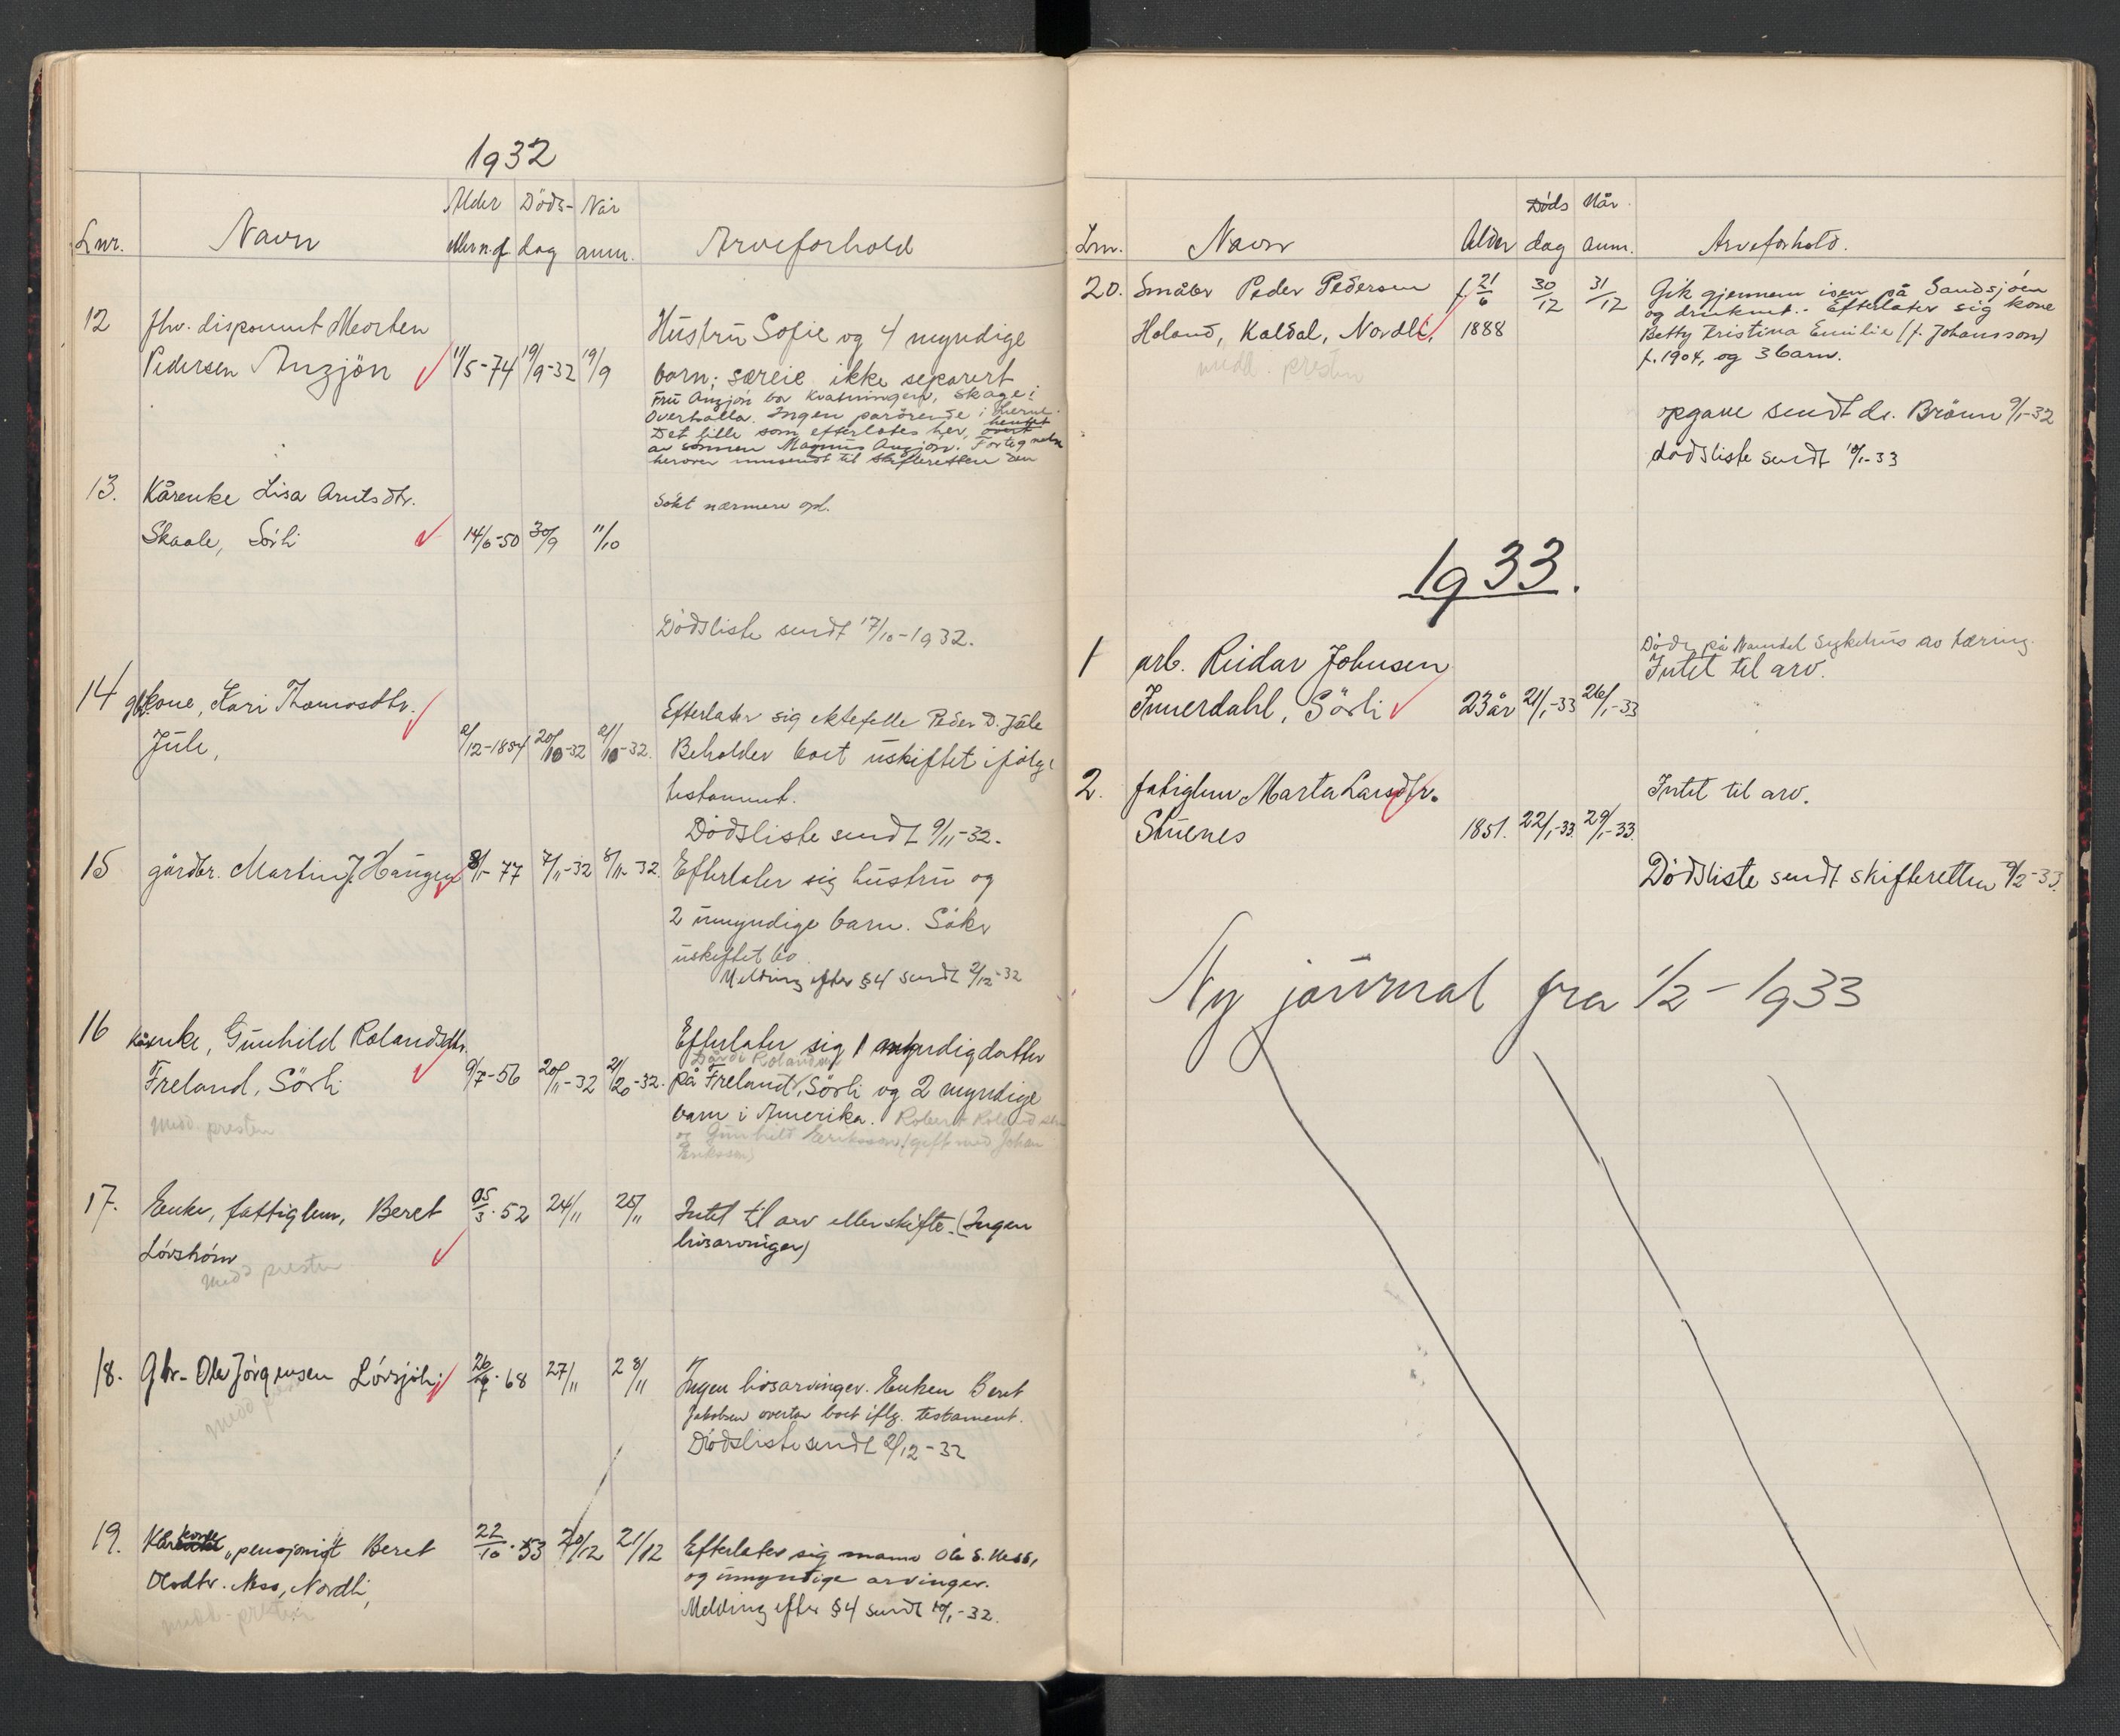 1932
Lnr. Navn Alder eller n.f. Døds-dag Når anm. Arveforhold
12 fhv. disponent Morten
Pedersen Anzjön 11/5-74 19/9-32 19/9
Hustru Sofie og 4 myndige
barn; særeie ikke separert
Fru Anzjön bor Kvatningen, Skage i
Overhalla. Ingen parörende i herne.
Det lille som efterlates her, hentet
av sönnen Magnus Anzjön. Fortegnelse
herover innsendt til skifteretten den
13. Kårenke Lisa Arntsdtr.
Skaale, Sörli 14/6-50 30/9 11/10
Sökt nærmere opl.
Dödsliste sendt 17/10-1932.
14 gbkone, Kari Thomasdtr.
Jule, 2/12-1854 20/10-32 21/10-32.
Efterlater sig ektefelle Peder D. Jule
Beholder boet uskiftet ifölge
testament.
Dödsliste sendt 9/11-32.
15 gårdbr. Martin J. Haugen 8/1-77 7/11-32 8/11-32.
Efterlater sig hustru og
2 umyndige barn. Söker
uskiftet bo.
Melding efter §4 sendt 2/12-32
16 Kårenke, Gunhild Rolandsdtr.
Freland, Sörli 9/7-56 20/11-32 21/20-32.
medd. presten
Efterlater sig 1 myndig datter
Dårdi Rolandsen
på Freland, Sörli og 2 myndige
barn i Amerika. Robert Roland
og Gunhild Eriksson (gift med Johan
Eriksson)
17. Enke, fattiglem, Beret
Lövström 05/3-52 24/11 25/11
medd presten
Intet til arv eller skifte. (Ingen
livsarvinger)
18. Gbr. Ole Jörgensen Lövsjöli 26/7-68 27/11 28/11
medd pres
Ingen livsarvinger. Enken Beret
Jakobsen overtar boet iflg. testament.
Dödsliste sendt 2/12-32
19. Kårkone, pensjonist Beret
Olsdtr. Ness, Nordli, 22/10-53 20/12 21/12
medd. presten
Efterlater sig mann Ole S. Ness,
og umyndige arvinger.
Melding efter §4 sendt 10/1-32.
Lnr. Navn Alder Døds dag Når anm. Arveforhold.
20. Småbr Peder Pedersen f. 21/6 30/12 31/12
Holand, Kaldal, Nordli, 1888
medd. presten
Gik gjennem isen på Sandsjöen
og druknet. Efterlater sig kone
Betty Kristina Emilie (f. Johansson)
f. 1904, og 3 barn.
opgave sendt dr. Brönn 9/1-32
dödsliste sendt 10/1-33
1933.
1 arb. Reidar Johnsen
Innerdahl, Sörli 23 år 21/1-33 26/1-33
Döde på Namdal Sykehus av tæring.
Intet til arv.
2. fatiglem Marta Larsdtr.
Stuenes 1851. 22/1-33. 29/1-33.
Intet til arv.
Dödsliste sendt skifteretten 9/2-33.
Ny journal fra 1/2-1933